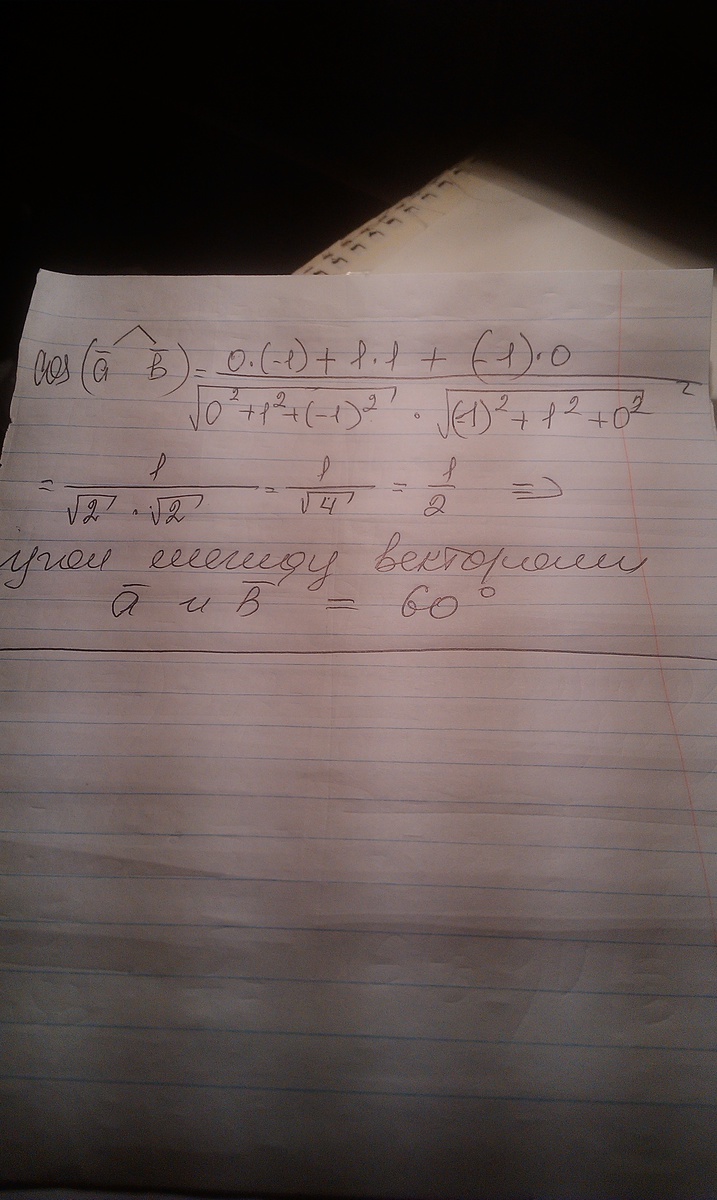 cos(a̅ ^ b̅) = 0·(-1) + 1·1 + (-1)·0 / √(0² + 1² + (-1)²) · √((-1)² + 1² + 0²) =
= 1 / √2 · √2 = 1 / √4 = 1 / 2 ⇒
угол между векторами
a̅ и b̅ = 60°